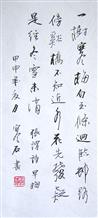 一樹寒梅白玉條迴臨村路
傍谿橋不知近水花先發疑
是經冬雪未消 張謂詩早梅
甲申年月 寒石書